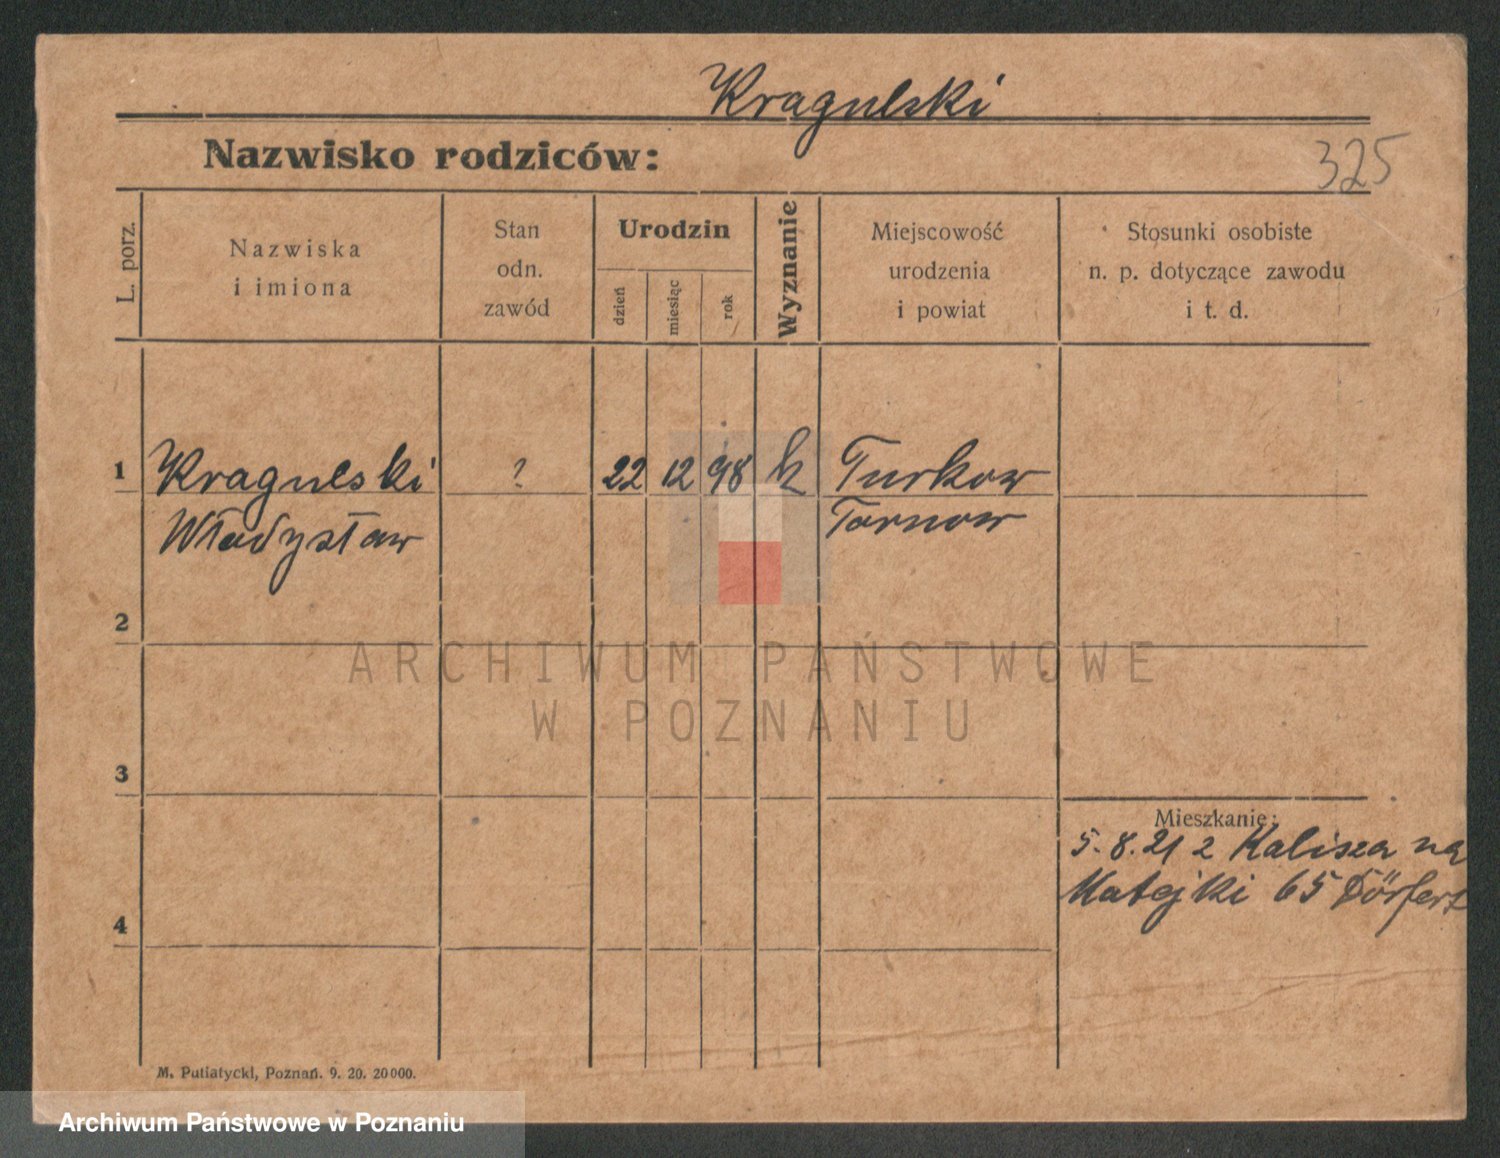 Kragulski
Nazwisko rodziców:
325
L. porz.
Nazwiska
i imiona
Stan
odn.
zawód
Urodzin
dzień
miesiąc
rok
Wyznanie
Miejscowość
urodzenia
i powiat
Stosunki osobiste
n. p. dotyczące zawodu
i t. d.
1 Kragulski ? 22 12 98 k Turkow
Władysław Tarnow
2
3
4
ARCHIWUM PAŃSTWOWE
W POZNANIU
Mieszkanie:
5.8.21 z Kalisza na
Matejki 65 Dörfert
M. Putiatycki, Poznań. 9. 20. 20000.
Archiwum Państwowe w Poznaniu